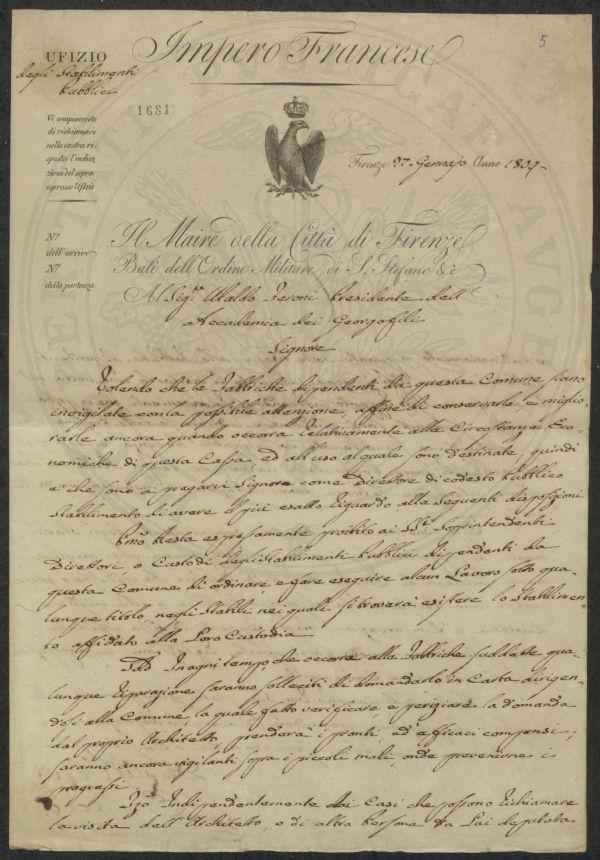 5
Impero Francese
UFIZIO
degli Stabilimenti
Pubblici
1681
Vi compiacerete
di richiamare
nella vostra ri-
sposta l'indica-
zioni del sopra
espresso Ufizio
Firenze 27. Gennajo Anno 1809.
Il Maire della Città di Firenze
Balì dell'Ordine Militare di S. Stefano &c
N.º
dell'arrivo
N.º
della partenza
Al Sig.r Ubaldo Feroni Presidente dell'
Accademia dei Georgofili
Signore
Volendo che le Fabbriche dipendenti da questa Comune siano
invigilate con la possibile attenzione, affine di conservarle, e miglio
rarle ancora quando occorra relativamente alle Circostanze Eco-
nomiche di questa Cassa, ed all'uso al quale sono destinate, quindi
è che sono a pregarvi Signore come Direttore di codesto Pubblico
Stabilimento di avere il più esatto riguardo alle seguenti disposizioni
Pmo Resta espressamente proibito ai SS.ri Soprintendenti
Direttori o Custodi degli Stabilimenti Pubblici dipendenti da
questa Comune di ordinare e fare eseguire alcun Lavoro sotto qua-
lunque titolo, negli Stabili nei quali si troverà esistere lo Stabilimen-
to affidato alla Loro Custodia
Sdo In ogni tempo che occorra alle Fabbriche suddette qua-
lunque riparazione saranno solleciti di domandarlo in Carta dirigen-
dosi alla Comune, la quale fatto verificare, e periziare la domanda
dal proprio Architetto, prenderà i pronti, ed efficaci compensi;
saranno ancora vigilanti sopra i piccoli mali, onde prevenirne i
progressi
Tzo Indipendentemente dai Casi che possono richiamare
la visita dell'Architetto, o di altra Persona da Lui deputata